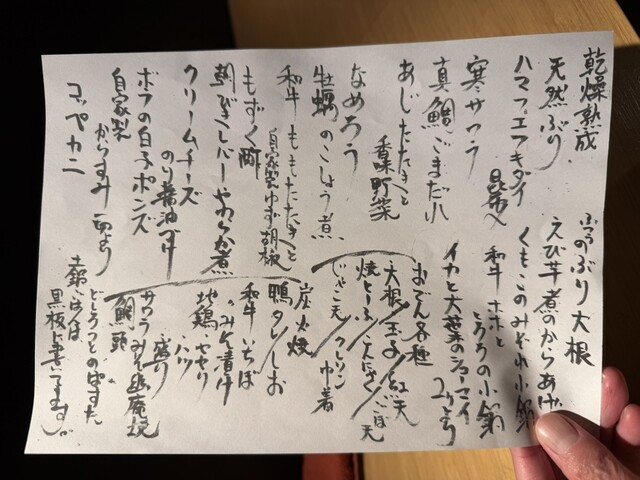 乾燥熟成
天然ぶり
ハマフエフキダイ
昆布〆
寒サワラ
真鯛ごまだれ
あじたたきと
香味野菜
なめろう
牡蠣のこしょう煮
和牛ももたたきと
自家製ゆず胡椒
もずく酢
朝びきレバーやわらか煮
クリームチーズ
のり醤油づけ
ボラの白子ポンズ
自家製
からすみ 一切より
コッペカニ
ふつうのぶり大根
えび芋煮のからあげ
くもこのみぞれ小鍋
和牛ホホと
とろろの小鍋
イカと大葉のシューマイ
2ケより
おでん各種
大根/玉子/紅天
焼とーふ/こんにゃく/ごぼ天
じゃこ天/クレソン
巾着
炭火焼
鴨タン/しお
和牛いちぼ
みそ漬け
地鶏 ヤゲン
ハツ
盛り
サワラみそ幽庵焼
鯛頭
どしょうつとのぱすた
土鍋ごはんは
黒板に書いてます。